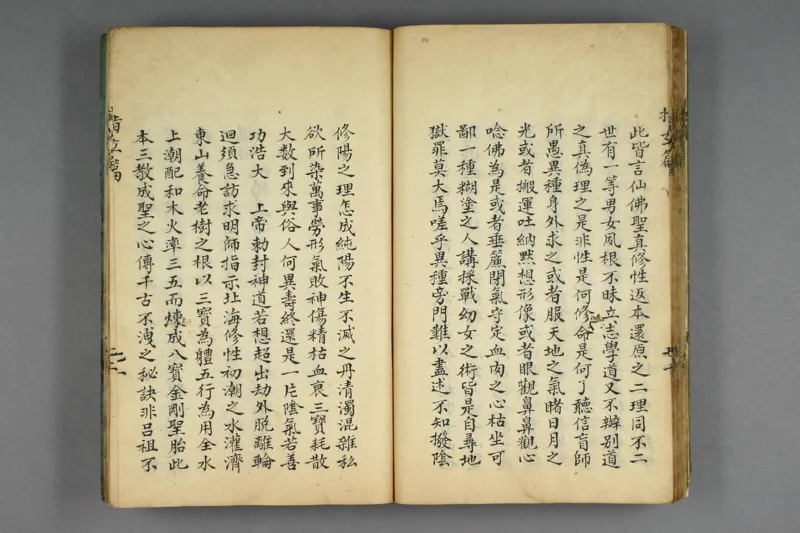 此皆言仙佛聖真修性返本還原之二理同不二
世有一等男女夙根不昧立志學道又不辨別道
之真偽理之是非性是何修命是何了聽信盲師
所愚異種身外求之或者服天地之氣睹日月之
光或者搬運吐納默想形像或者眼觀鼻鼻觀心
唸佛為是或者垂簾閉氣守定血肉之心枯坐可
鄙一種糊塗之人講採戰幼女之術皆是自尋地
獄罪莫大焉嗟乎異種旁門難以盡述不知撥陰
修陽之理怎成純陽不生不滅之丹清濁混雜私
欲所染萬事勞形氣敗神傷精枯血衰三寶耗散
大数到來與俗人何異壽終還是一片陰氣若善
功浩大 上帝勅封神道若想超出劫外脫離輪
迴須急訪求明師指示北海修性初潮之水灌濟
東山養命老樹之根以三寶為體五行為用全水
上潮配和木火率三五而煉成八寶金剛聖胎此
本三教成聖之心傳千古不洩之秘訣非呂祖不